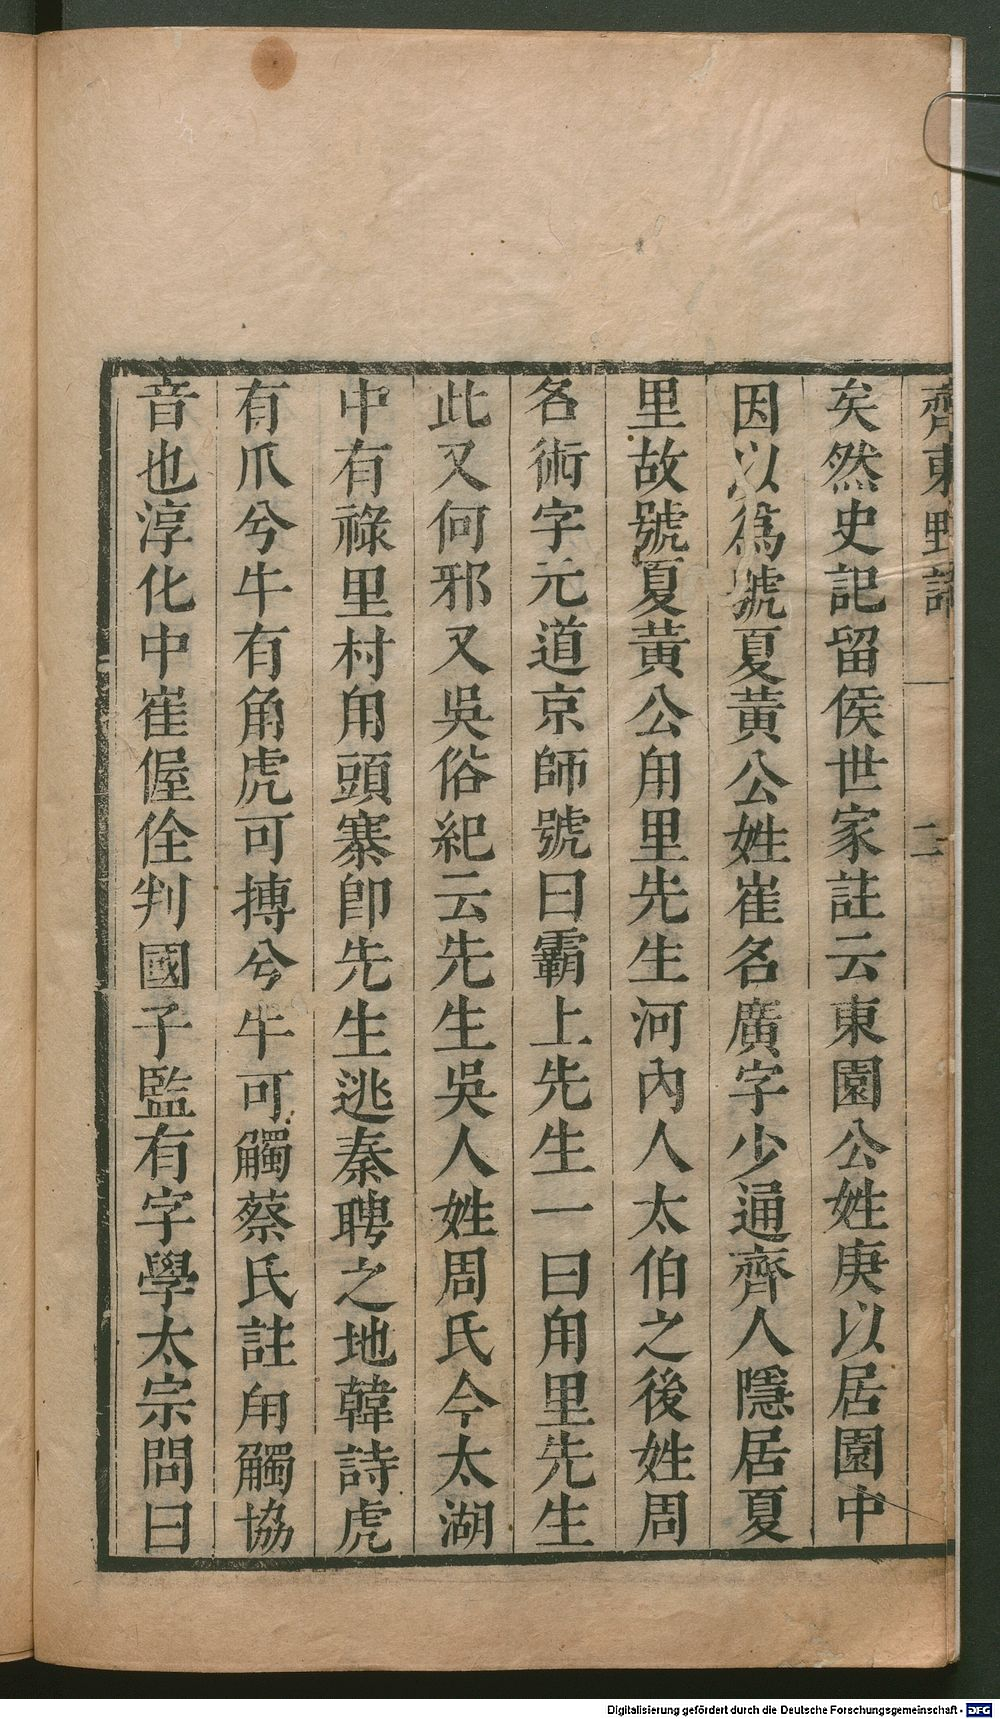 齊東野語 二
矣然史記留侯世家註云東園公姓庚以居園中
因以為號夏黃公姓崔名廣字少通齊人隱居夏
里故號夏黃公甪里先生河內人太伯之後姓周
名術字元道京師號曰霸上先生一曰甪里先生
此又何邪又吳俗紀云先生吳人姓周氏今太湖
中有祿里村甪頭寨卽先生逃秦聘之地韓詩虎
有爪兮牛有角虎可搏兮牛可觸蔡氏註甪觸協
音也淳化中崔偓佺判國子監有字學太宗問曰
Digitalisierung gefördert durch die Deutsche Forschungsgemeinschaft - DFG